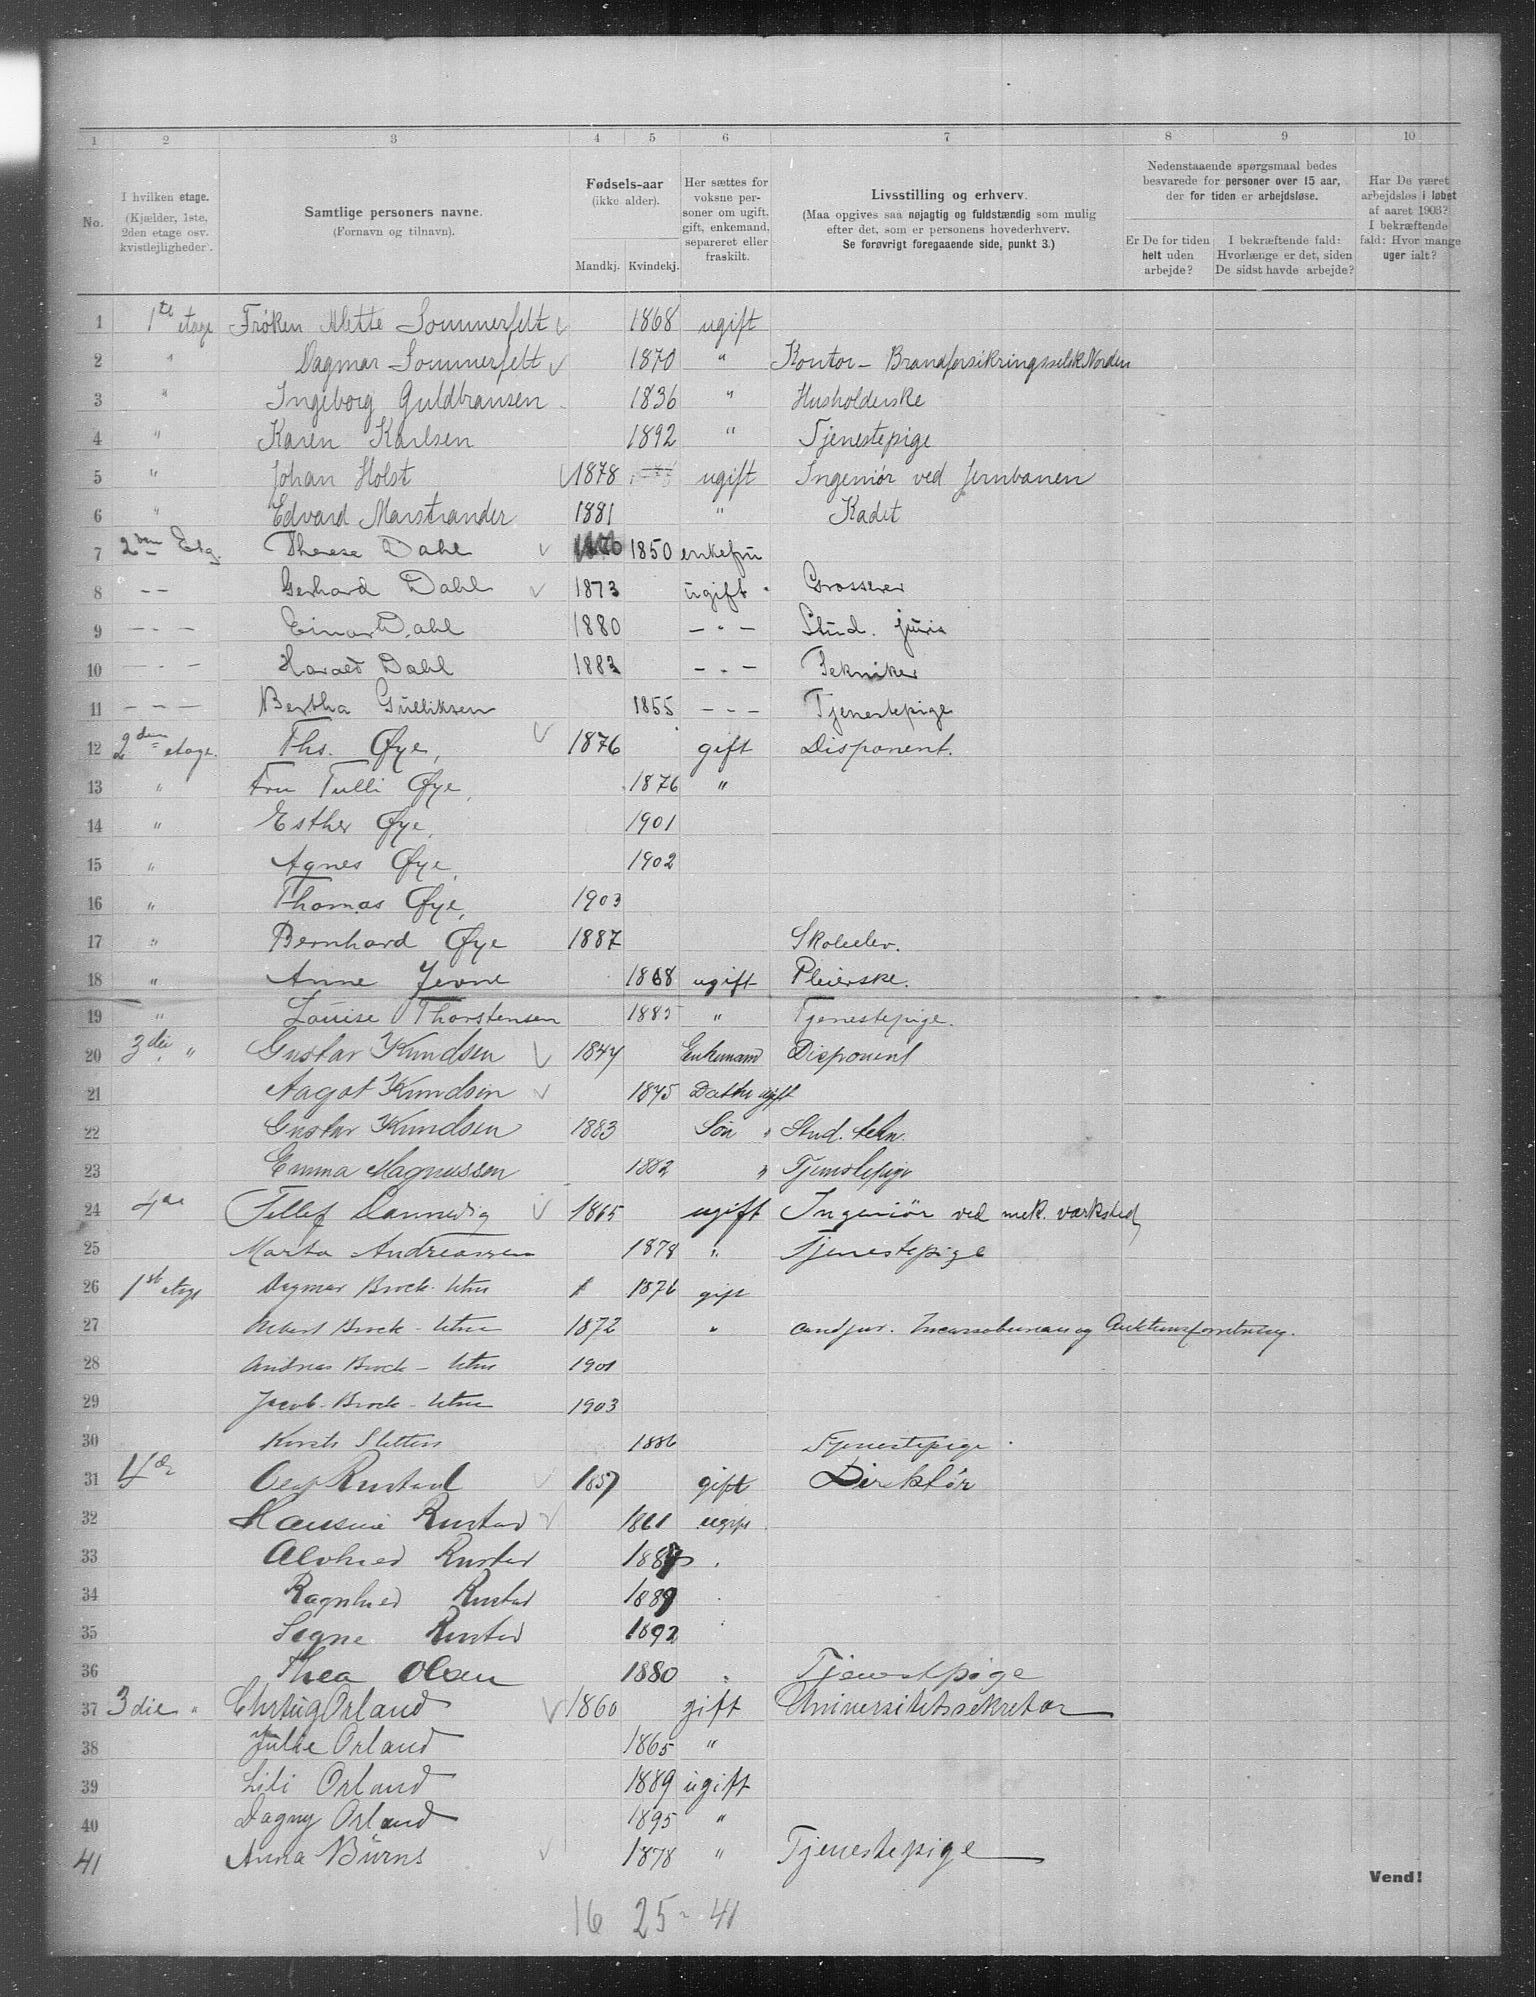 1 2 3 4 5 6 7 8 9 10
No.
I hvilken etage.
(Kjælder, 1ste,
2den etage osv.
kvistlejligheder).
Samtlige personers navne.
(Fornavn og tilnavn).
Fødsels-aar
(ikke alder).
Mandkj. Kvindekj.
Her sættes for
voksne per-
soner om ugift,
gift, enkemand,
separeret eller
fraskilt.
Livsstilling og erhverv.
(Maa opgives saa nøjagtig og fuldstændig som mulig
efter det, som er personens hovederhverv.
Se forøvrigt foregaaende side, punkt 3.)
Nedenstaaende spørgsmaal bedes
besvarede for personer over 15 aar,
der for tiden er arbejdsløse.
Er De for tiden
helt uden
arbejde?
I bekræftende fald:
Hvorlænge er det, siden
De sidst havde arbejde?
Har De været
arbejdsløs i løbet
af aaret 1903?
I bekræftende
fald: Hvor mange
uger ialt?
1 1te etage Frøken Alette Sommerfelt 1868 ugift
2 " Dagmar Sommerfelt 1870 " Kontor - Brandforsikringsselsk. Norden
3 " Ingeborg Guldbransen 1836 " Husholderske
4 " Karen Karlsen 1892 " Tjenestepige
5 " Johan Holst 1878 ugift Ingeniør ved Jernbanen
6 " Edvard Marstrander 1881 " Kadet
7 2den Etg. Therese Dahl 1850 enkefru
8 - - Gerhard Dahl 1873 ugift Grosserer
9 - - - Einar Dahl 1880 - - - Stud. juris
10 - - - Harald Dahl 1882 - - - Tekniker
11 - - - Bertha Gulliksen 1855 - - - Tjenestepige
12 2den etage. Ths. Øye, 1876 gift Disponent.
13 " Fru Tulli Øye, 1876 "
14 " Esther Øye, 1901
15 " Agnes Øye, 1902
16 " Thomas Øye, 1903
17 " Bernhard Øye 1887 Skoleelev.
18 " Anne Jevne 1868 ugift Pleierske.
19 " Louise Thorstensen 1885 " Tjenestepige.
20 3die " Gustav Knudsen 1847 Enkemand Disponent
21 Aagot Knudsen 1875 Datter ugift
22 Gustav Knudsen 1883 Søn " Stud. tekn.
23 Emma Magnussen 1882 " Tjenestepige
24 4de Tellef Dannevig 1865 ugift Ingeniør ved mek. værksted
25 Marta Andreassen 1878 " Tjenestepige
26 1st etage Dagmar Brock-Utne 1876 gift
27 Brock-Utne 1872 " cand jur. Incassobureau og Auktionsforretning.
28 Andreas Brock-Utne 1901
29 Jacob Brock-Utne 1903
30 Sletten 1886 Tjenestepige
31 4de Rustad 1857 gift Direktør
32 Rustad 1861 ugift
33 Rustad 1887
34 Ragnhild Rustad 1889
35 Signe Rustad 1892
36 Thea Olsen 1880 " Tjenestepige
37 3die " Orland 1860 gift Universitetssekretær
38 Julie Orland 1865 "
39 Lili Orland 1889 ugift
40 Dagny Orland 1895 "
41 Anna Burns 1878 " Tjenestepige
Vend!
16 25 - 41